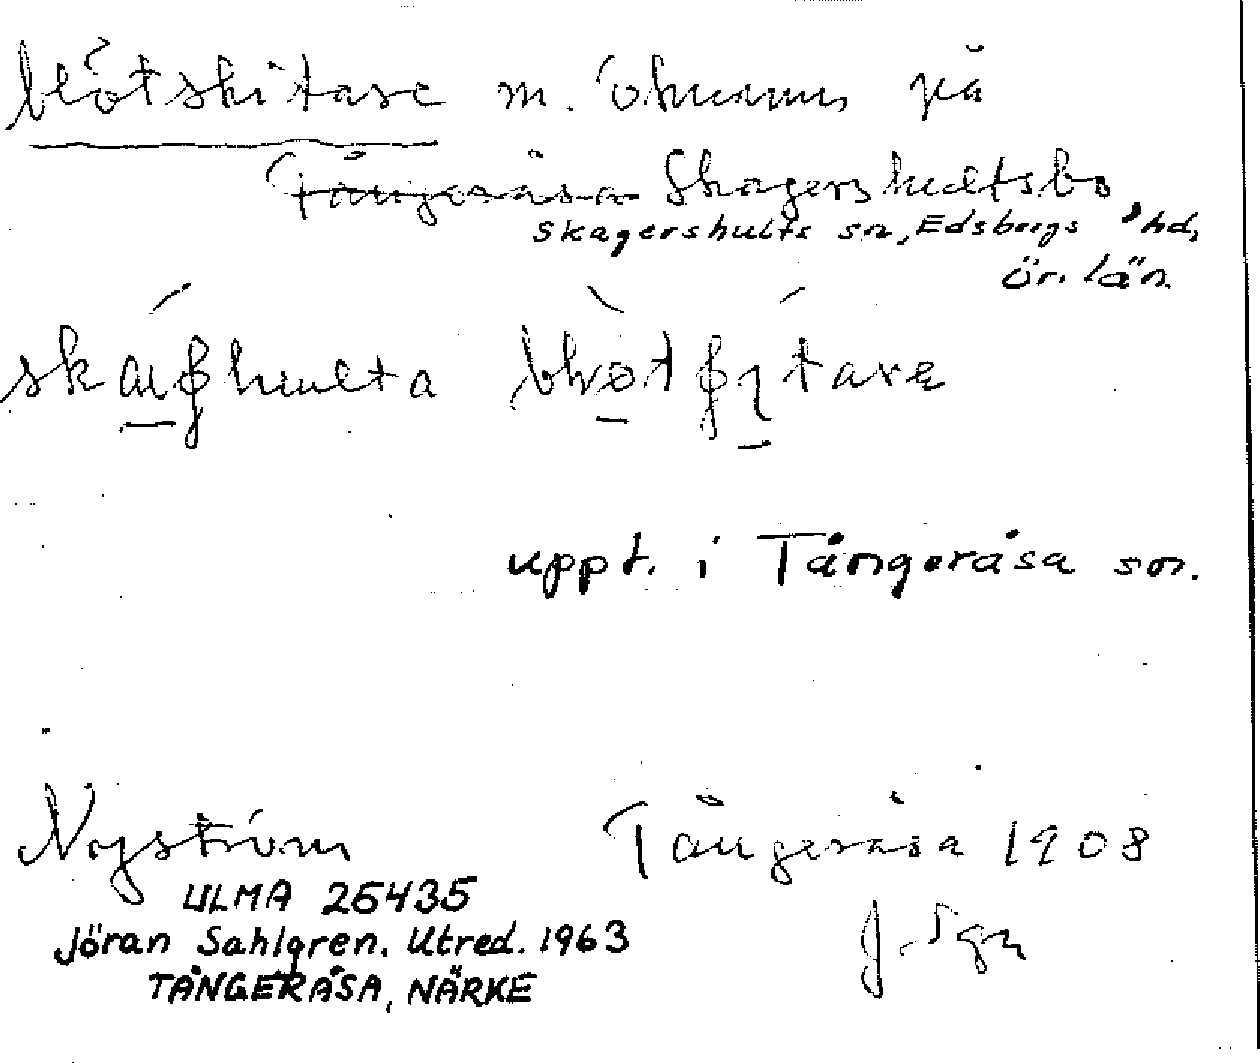 blötskitare m. öknamn på
Tångeråsa Skagershultsbo,
Skagershults sn, Edsbergs hd,
Ör. län.
uppt. i Tångeråsa sn.
Nyström Tångeråsa 1908
ULMA 26435 J. Sgn
Jöran Sahlgren. Utred. 1963
TÅNGERÅSA, NÄRKE